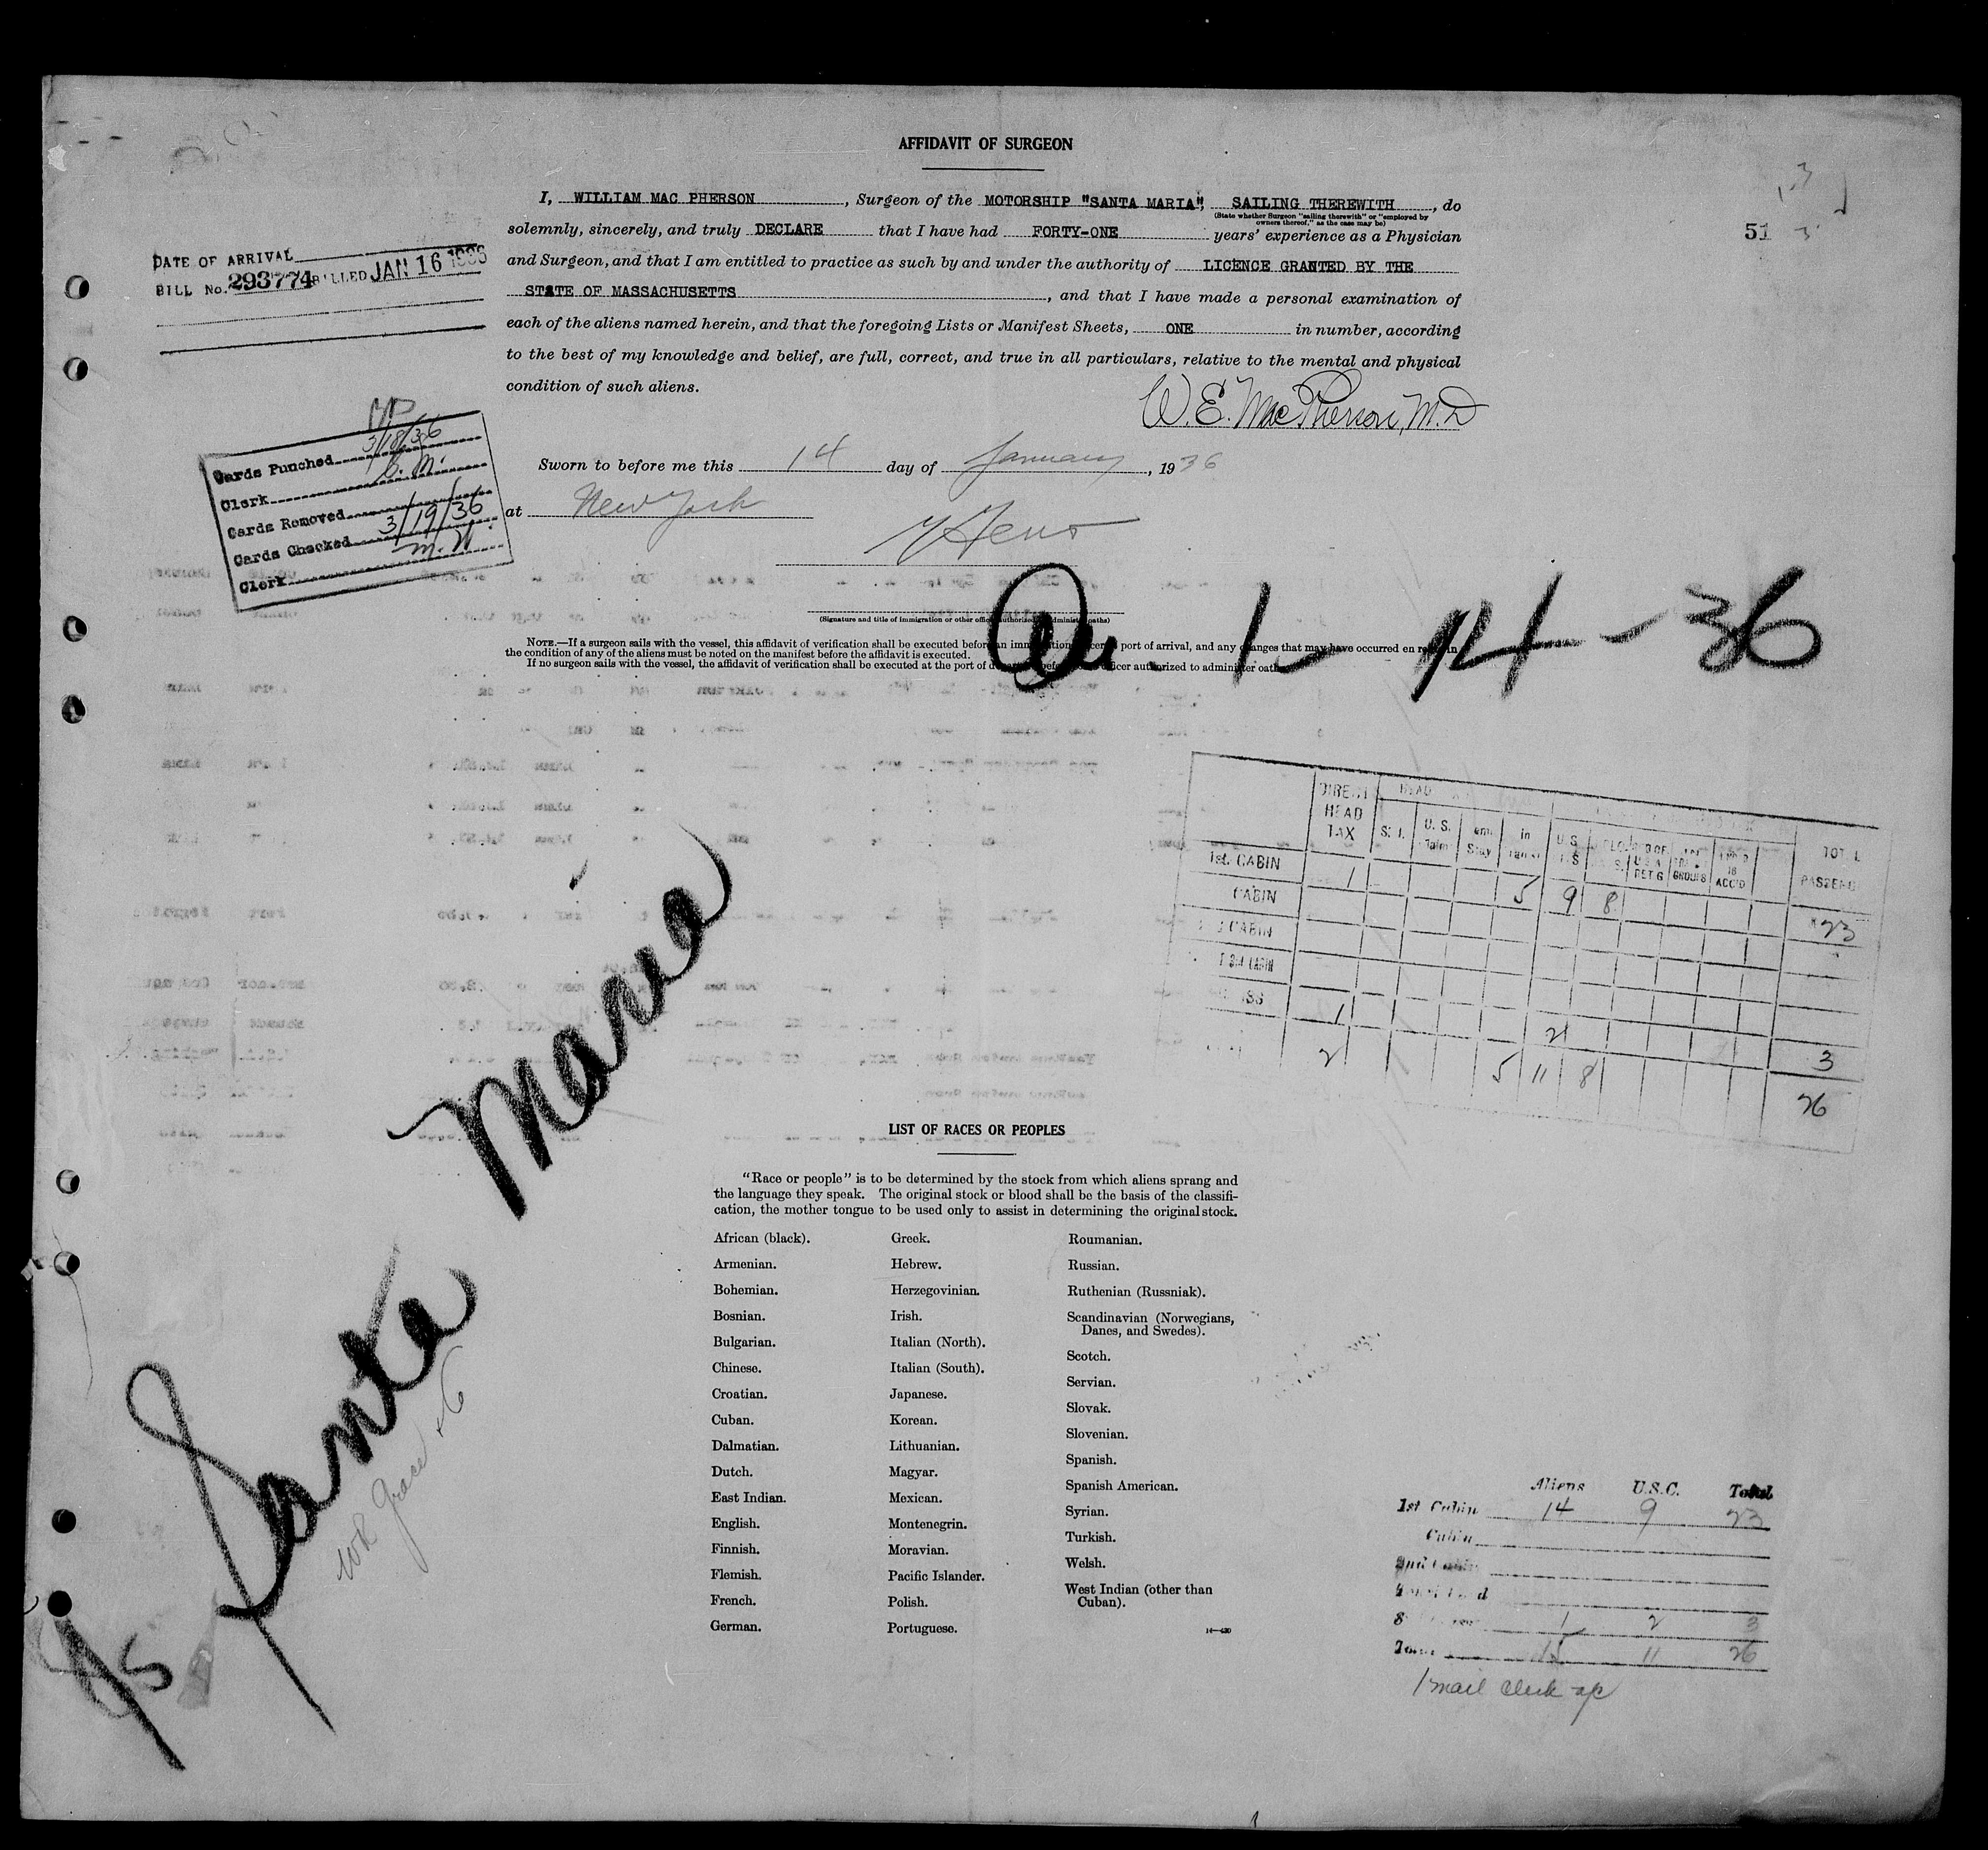 AFFIDAVIT OF SURGEON
I, WILLIAM MAC PHERSON, Surgeon of the MOTORSHIP "SANTA MARIA", SAILING THEREWITH, do
(State whether Surgeon "sailing therewith" or "employed by
owners thereof," as the case may be)
solemnly, sincerely, and truly DECLARE that I have had FORTY-ONE years' experience as a Physician
and Surgeon, and that I am entitled to practice as such by and under the authority of LICENCE GRANTED BY THE
STATE OF MASSACHUSETTS, and that I have made a personal examination of
each of the aliens named herein, and that the foregoing Lists or Manifest Sheets, ONE in number, according
to the best of my knowledge and belief, are full, correct, and true in all particulars, relative to the mental and physical
condition of such aliens.
W. E. MacPherson, M.D
Sworn to before me this 14 day of January, 1936
at New York
(Signature and title of immigration or other officer authorized to administer oaths)
51
DATE OF ARRIVAL
BILL No. 293774 BILLED JAN 16 1936
Cards Punched 3/18/36
Clerk
Cards Removed
Cards Checked 3/19/36
Clerk
1-14-36
NOTE.—If a surgeon sails with the vessel, this affidavit of verification shall be executed before an immigration officer port of arrival, and any changes that may have occurred en
the condition of any of the aliens must be noted on the manifest before the affidavit is executed.
If no surgeon sails with the vessel, the affidavit of verification shall be executed at the port of departure before officer authorized to administer oaths.
DIRECT HEAD TAX
HEAD
U.S.
Stay
in
U.S.
RET'G
GROUPS
ACC'D
TOTAL
1st. CABIN 1 5 9 8 23
CABIN
CABIN
1 2 3
2 5 11 8 26
Santa Maria
WR Grace
LIST OF RACES OR PEOPLES
"Race or people" is to be determined by the stock from which aliens sprang and
the language they speak. The original stock or blood shall be the basis of the classifi-
cation, the mother tongue to be used only to assist in determining the original stock.
African (black).
Armenian.
Bohemian.
Bosnian.
Bulgarian.
Chinese.
Croatian.
Cuban.
Dalmatian.
Dutch.
East Indian.
English.
Finnish.
Flemish.
French.
German.
Greek.
Hebrew.
Herzegovinian.
Irish.
Italian (North).
Italian (South).
Japanese.
Korean.
Lithuanian.
Magyar.
Mexican.
Montenegrin.
Moravian.
Pacific Islander.
Polish.
Portuguese.
Roumanian.
Russian.
Ruthenian (Russniak).
Scandinavian (Norwegians,
Danes, and Swedes).
Scotch.
Servian.
Slovak.
Slovenian.
Spanish.
Spanish American.
Syrian.
Turkish.
Welsh.
West Indian (other than
Cuban).
Aliens U.S.C. Total
1st Cabin 14 9 23
Cabin
2nd Cabin
1 2 3
Total 15 11 26
1 mail clerk